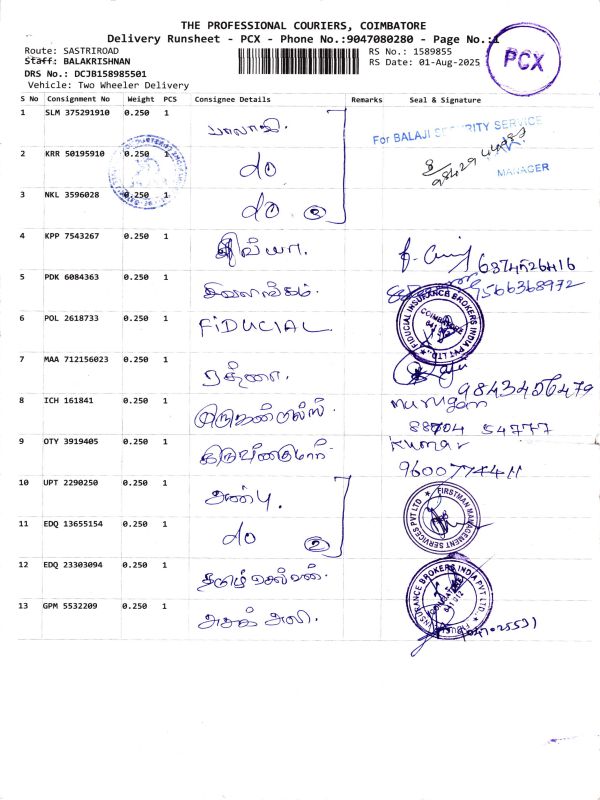 THE PROFESSIONAL COURIERS, COIMBATORE
Delivery Runsheet - PCX - Phone No.:9047080280 - Page No.:1
Route: SASTRIROAD
RS No.: 1589855
Staff: BALAKRISHNAN
RS Date: 01-Aug-2025
DRS No.: DCJB158985501
Vehicle: Two Wheeler Delivery
PCX
S No Consignment No Weight PCS Consignee Details Remarks Seal & Signature
1 SLM 375291910 0.250 1 பாலாஜி.
For BALAJI SECURITY SERVICE
MANAGER
2 KRR 50195910 0.250 1 do
3 NKL 3596028 0.250 1 do ③
4 KPP 7543267 0.250 1 6874526416
5 PDK 6084363 0.250 1 9566368972
6 POL 2618733 0.250 1 FiDUCIAL
FIDUCIAL INSURANCE BROKERS INDIA PVT LTD.,
COIMBATORE
641 012
7 MAA 712156023 0.250 1 ரத்னா.
9843456479
8 ICH 161841 0.250 1 murugan
88704 54777
9 OTY 3919405 0.250 1 Kumar
9600774411
10 UPT 2290250 0.250 1 அன்பு.
FIRSTMAN MANAGEMENT SERVICES PVT LTD
11 EDQ 13655154 0.250 1 do ②
12 EDQ 23303094 0.250 1 தமிழ் செல்வன்.
INSURANCE BROKERS INDIA PVT LTD.,
COIMBATORE
641 012
13 GPM 5532209 0.250 1 அசக் அலி.